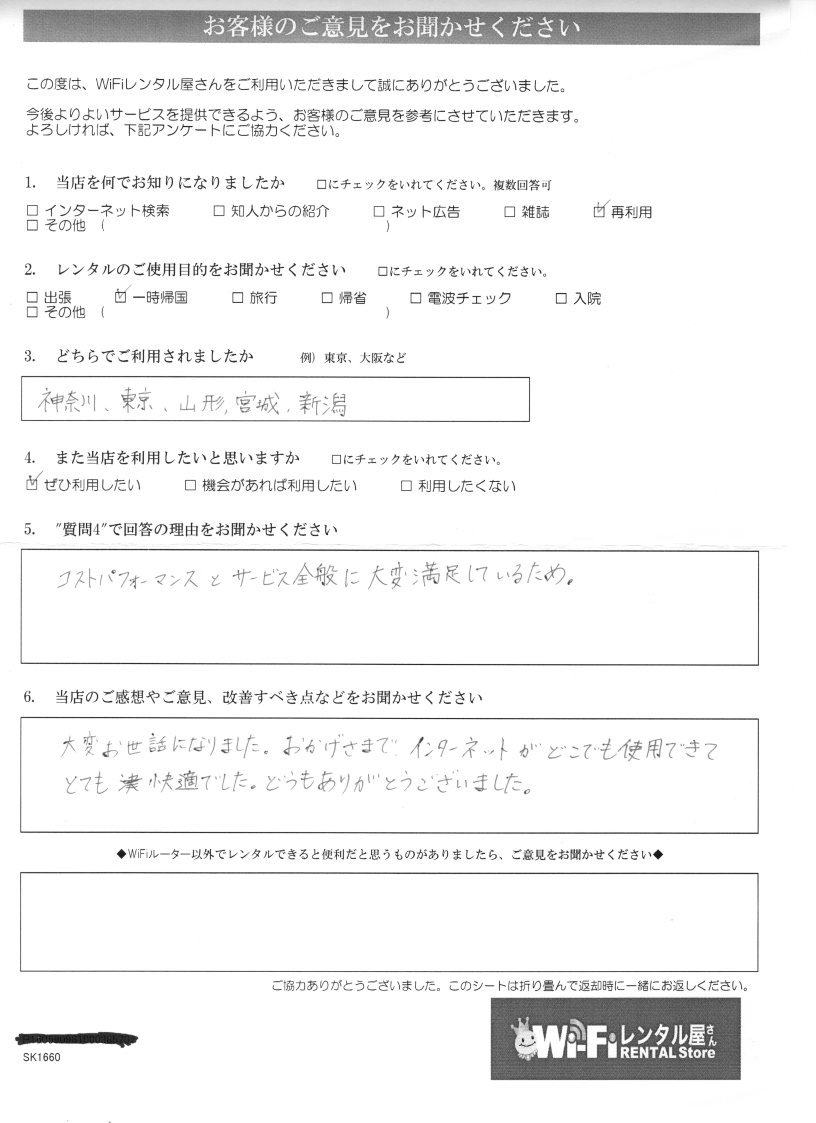 お客様のご意見をお聞かせください
この度は、WiFiレンタル屋さんをご利用いただきまして誠にありがとうございました。
今後よりよいサービスを提供できるよう、お客様のご意見を参考にさせていただきます。
よろしければ、下記アンケートにご協力ください。
1. 当店を何でお知りになりましたか □にチェックをいれてください。複数回答可
□ インターネット検索 □ 知人からの紹介 □ ネット広告 □ 雑誌 ☑ 再利用
□ その他 ( )
2. レンタルのご使用目的をお聞かせください □にチェックをいれてください。
□ 出張 ☑ 一時帰国 □ 旅行 □ 帰省 □ 電波チェック □ 入院
□ その他 ( )
3. どちらでご利用されましたか 例) 東京、大阪など
神奈川、東京、山形, 宮城, 新潟
4. また当店を利用したいと思いますか □にチェックをいれてください。
☑ ぜひ利用したい □ 機会があれば利用したい □ 利用したくない
5. "質問4"で回答の理由をお聞かせください
コストパフォーマンスとサービス全般に大変満足しているため。
6. 当店のご感想やご意見、改善すべき点などをお聞かせください
大変お世話になりました。おかげさまで、インターネットがどこでも使用できて
とても快適でした。どうもありがとうございました。
◆WiFiルーター以外でレンタルできると便利だと思うものがありましたら、ご意見をお聞かせください◆
ご協力ありがとうございました。このシートは折り畳んで返却時に一緒にお返しください。
Wi-Fiレンタル屋さん
RENTAL Store
SK1660